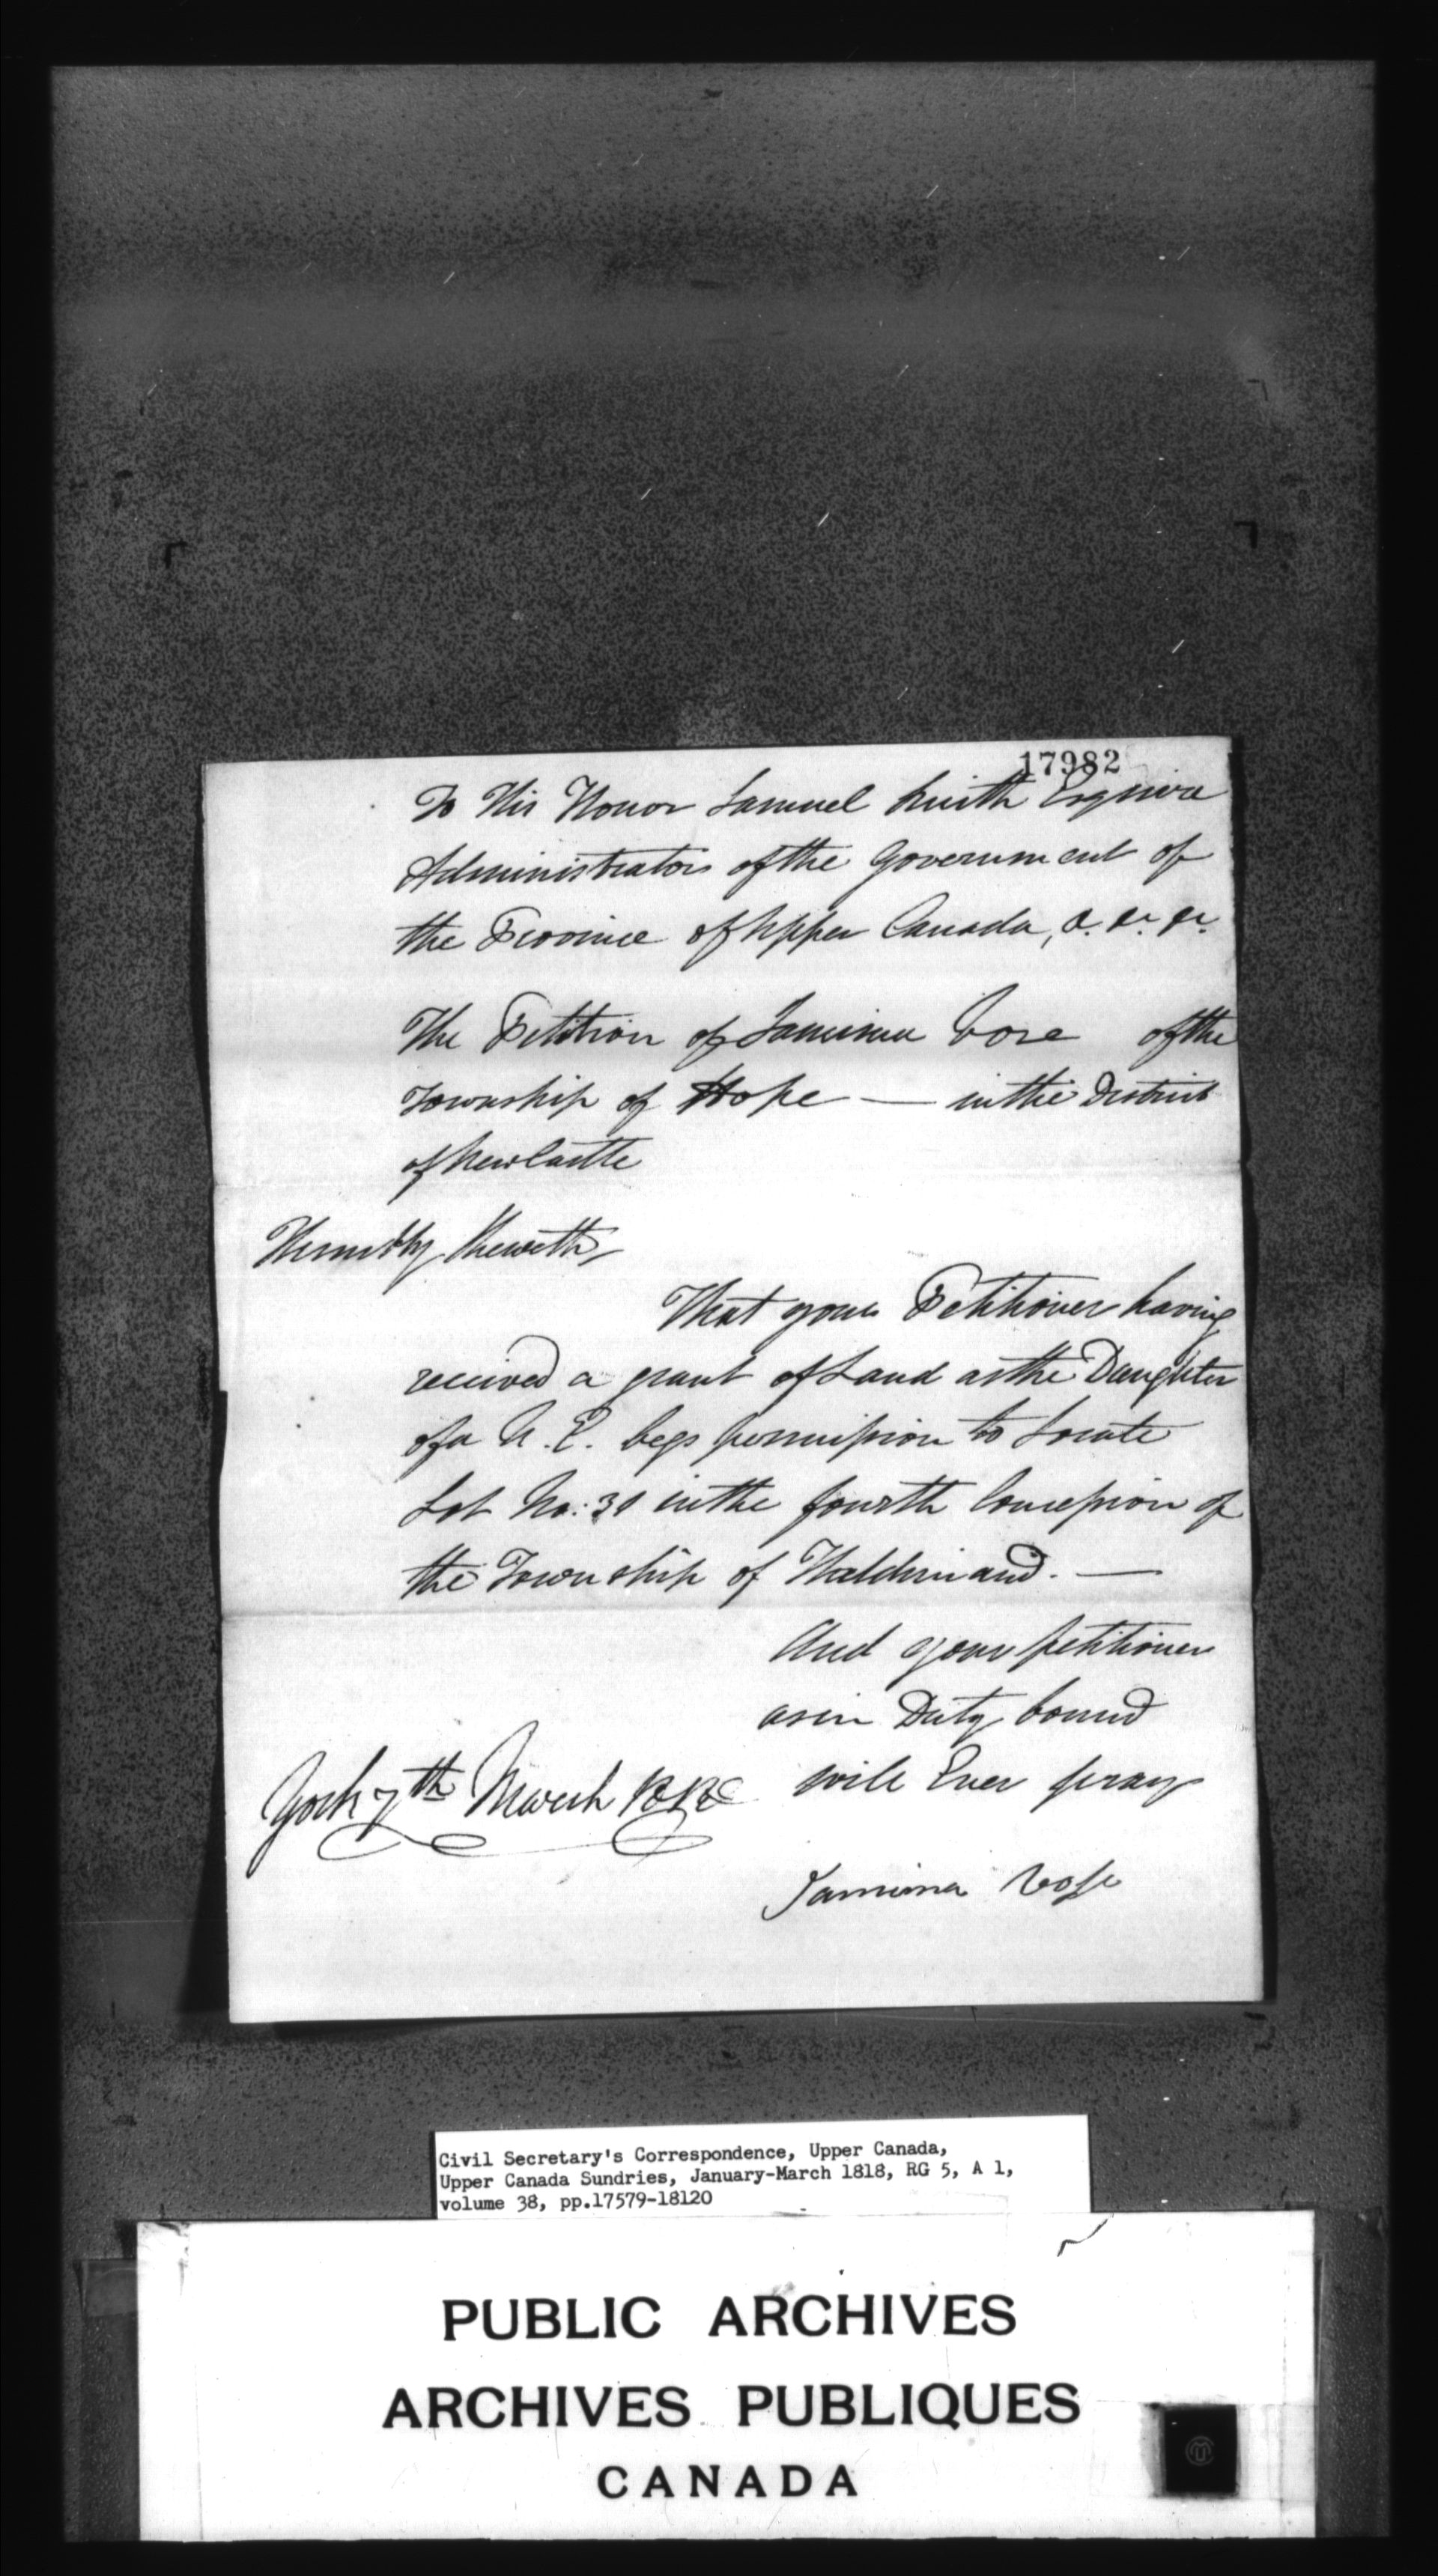 17982
To His Honor Samuel Smith Esquire
Administrator of the Government of
the Province of Upper Canada, &. &c. &c.
The Petition of Jamima Vose of the
Township of Hope — in the District
of NewCastle
Humbly Sheweth,
That your Petitioner having
received a grant of Land as the Daughter
of a U. E. begs permission to Locate
Lot No: 31 in the fourth Concession of
the Township of Haldimand. —
And your petitioner
as in Duty bound
will Ever pray
York 7th March 1818
Jamima Vose
Civil Secretary's Correspondence, Upper Canada,
Upper Canada Sundries, January-March 1818, RG 5, A 1,
volume 38, pp.17579-18120
PUBLIC ARCHIVES
ARCHIVES PUBLIQUES
CANADA